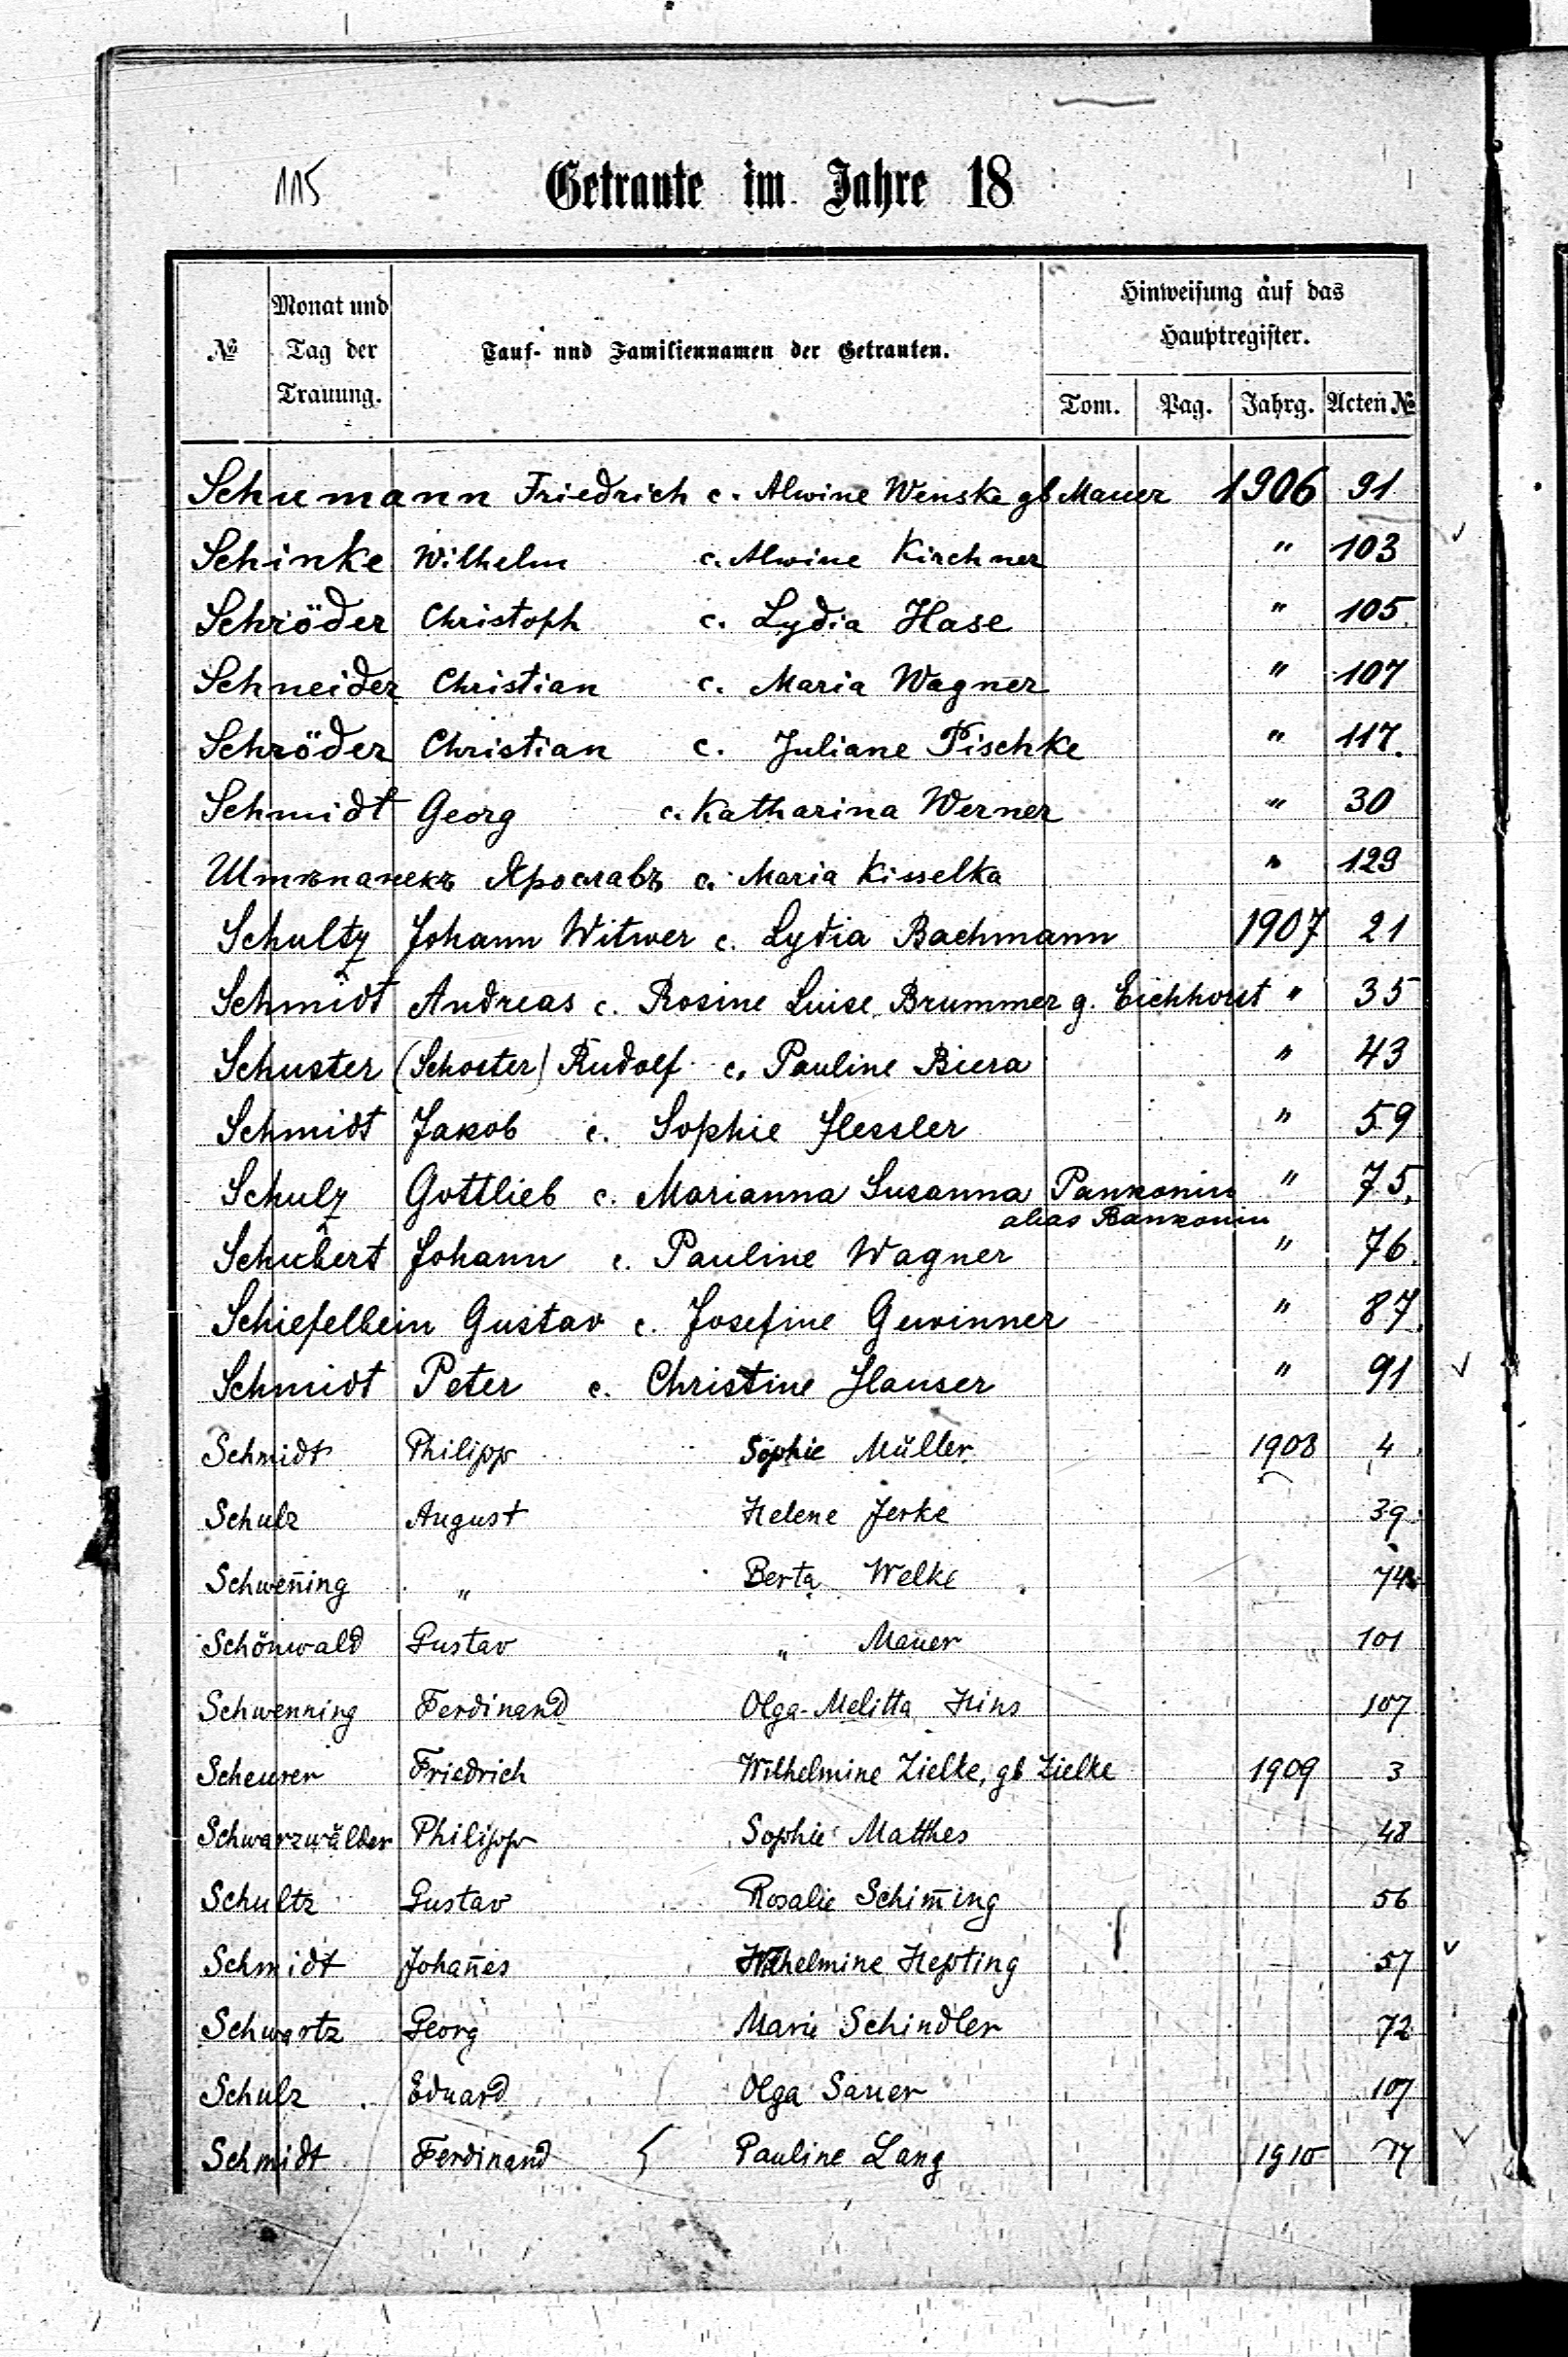 115 Getraute im Jahre 18
№ Monat und Tag der Trauung. Tauf- und Familiennamen der Getrauten. Hinweisung auf das Hauptregister.
Tom. Pag. Jahrg. Acten №
Schumann Friedrich c. Alwine Wenske gb Mauer 1906 91
Schinke Wilhelm c. Alwine Kirchner " 103
Schröder Christoph c. Lydia Hase " 105.
Schneider Christian c. Maria Wagner " 107
Schröder Christian c. Juliane Pischke " 117.
Schmidt Georg c. Katharina Werner " 30
Штѣпанекъ Ярославъ c. Maria Kisselka " 129
Schultz Johann Witwer c. Lydia Bachmann 1907 21
Schmidt Andreas c. Rosine Luise Brummer g. Eichhorst " 35
Schuster (Schoster) Rudolf c. Pauline Biera " 43
Schmidt Jakob c. Sophie Hessler " 59
Schulz Gottlieb c. Marianna Susanna Pankonin " 75.
alias Bankonin
Schubert Johann c. Pauline Wagner " 76.
Schiefelbein Gustav c. Josefine Gewinner " 87.
Schmidt Peter c. Christine Hauser " 91
Schmidt Philipp Sophie Müller 1908 4
Schulz August Helene Jerke 39.
Schwen̄ing " Berta Welke 74
Schönwald Gustav " Mauer 101
Schwenning Ferdinand Olga-Melitta Hins 107
Scheurer Friedrich Wilhelmine Zielke, gb Zielke 1909 3
Schwarzwälder Philipp Sophie Matthes 48
Schultz Gustav Rosalie Schim̄ing 56
Schmidt Johan̄es Wilhelmine Hepting 57
Schwartz Georg Marie Schindler 72
Schulz Eduard Olga Sauer 107
Schmidt Ferdinand Pauline Lang 1910